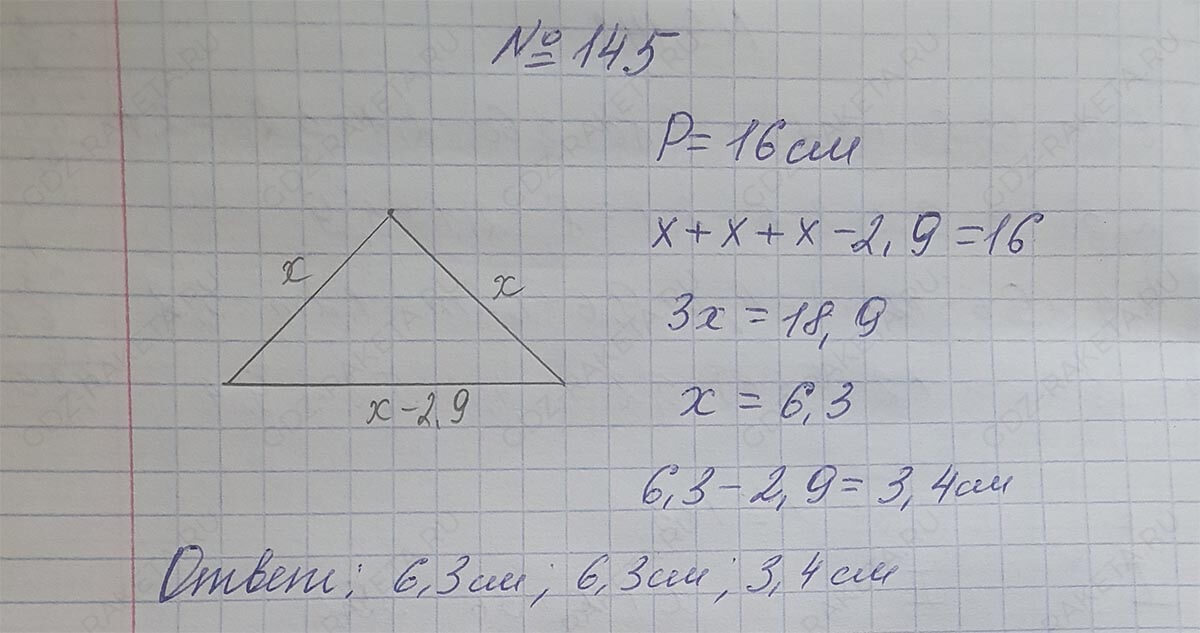 № 145
P = 16 см
x + x + x - 2,9 = 16
x
x
3x = 18,9
x = 6,3
x - 2,9
6,3 - 2,9 = 3,4 см
Ответ: 6,3 см; 6,3 см; 3,4 см
GDZ-RAKETA.RU